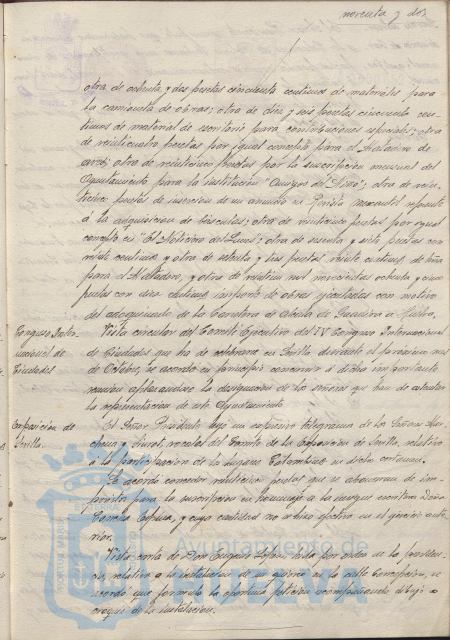 noventa y dos
otra de ochenta y dos pesetas cincuenta centimos de materiales para
la camioneta de obras; otra de diez y seis pesetas cincuenta cen-
timos de material de escritorio para contribuciones especiales; otra
de veinticuatro pesetas por igual concepto para el Matadero de
aves; otra de veinticinco pesetas por la suscripcion mensual del
Ayuntamiento para la institucion "Amigos del Niño"; otra de vein-
ticinco pesetas de insercion de un anuncio en Revista mercantil respecto
á la adquisicion de básculas; otra de veintiuna pesetas por igual
concepto en "El Noticiero del Lunes"; otra de sesenta y siete pesetas con
veinte centimos y otra de setenta y seis pesetas veinte centimos de leña
para el Matadero, y otra de mil novecientas ochenta y cinco
pesetas con diez centimos importe de obras ejecutadas con motivo
del adoquinado de la Carretera de Alcalá de Guadaira a Huelva.
Congreso Inter-
nacional de
Ciudades
Vista circular del Comité Ejecutivo del IV Congreso Internacional
de Ciudades que ha de celebrarse en Sevilla durante el proximo mes
de Octubre, se acordó en principio concurrir á dicha importante
reunion aplazandose la designacion de los señores que han de ostentar
la representacion de este Ayuntamiento.
Exposicion de
Sevilla.
El Señor Presidente leyó un expresivo telegrama de los Señores
y vocales del Comité de la Exposicion de Sevilla, relativo
á la participacion de los lugares Colombinos en dicho certamen.
Se acordó conceder veinticinco pesetas que se abonaran de im-
previstos para la suscripcion en homenaje á la insigne escritora Doña
Concha Espina, y cuya cantidad no se hizo efectiva en el ejercicio ante-
rior.
Vista carta de Don Eugenio dirigida por orden de la Presiden-
cia, relativa a la instalacion de un quiosco en la calle Concepcion, se
acordó que formule la oportuna peticion acompañando dibujo o
croquis de la instalacion.
Ayuntamiento de
HUELVA